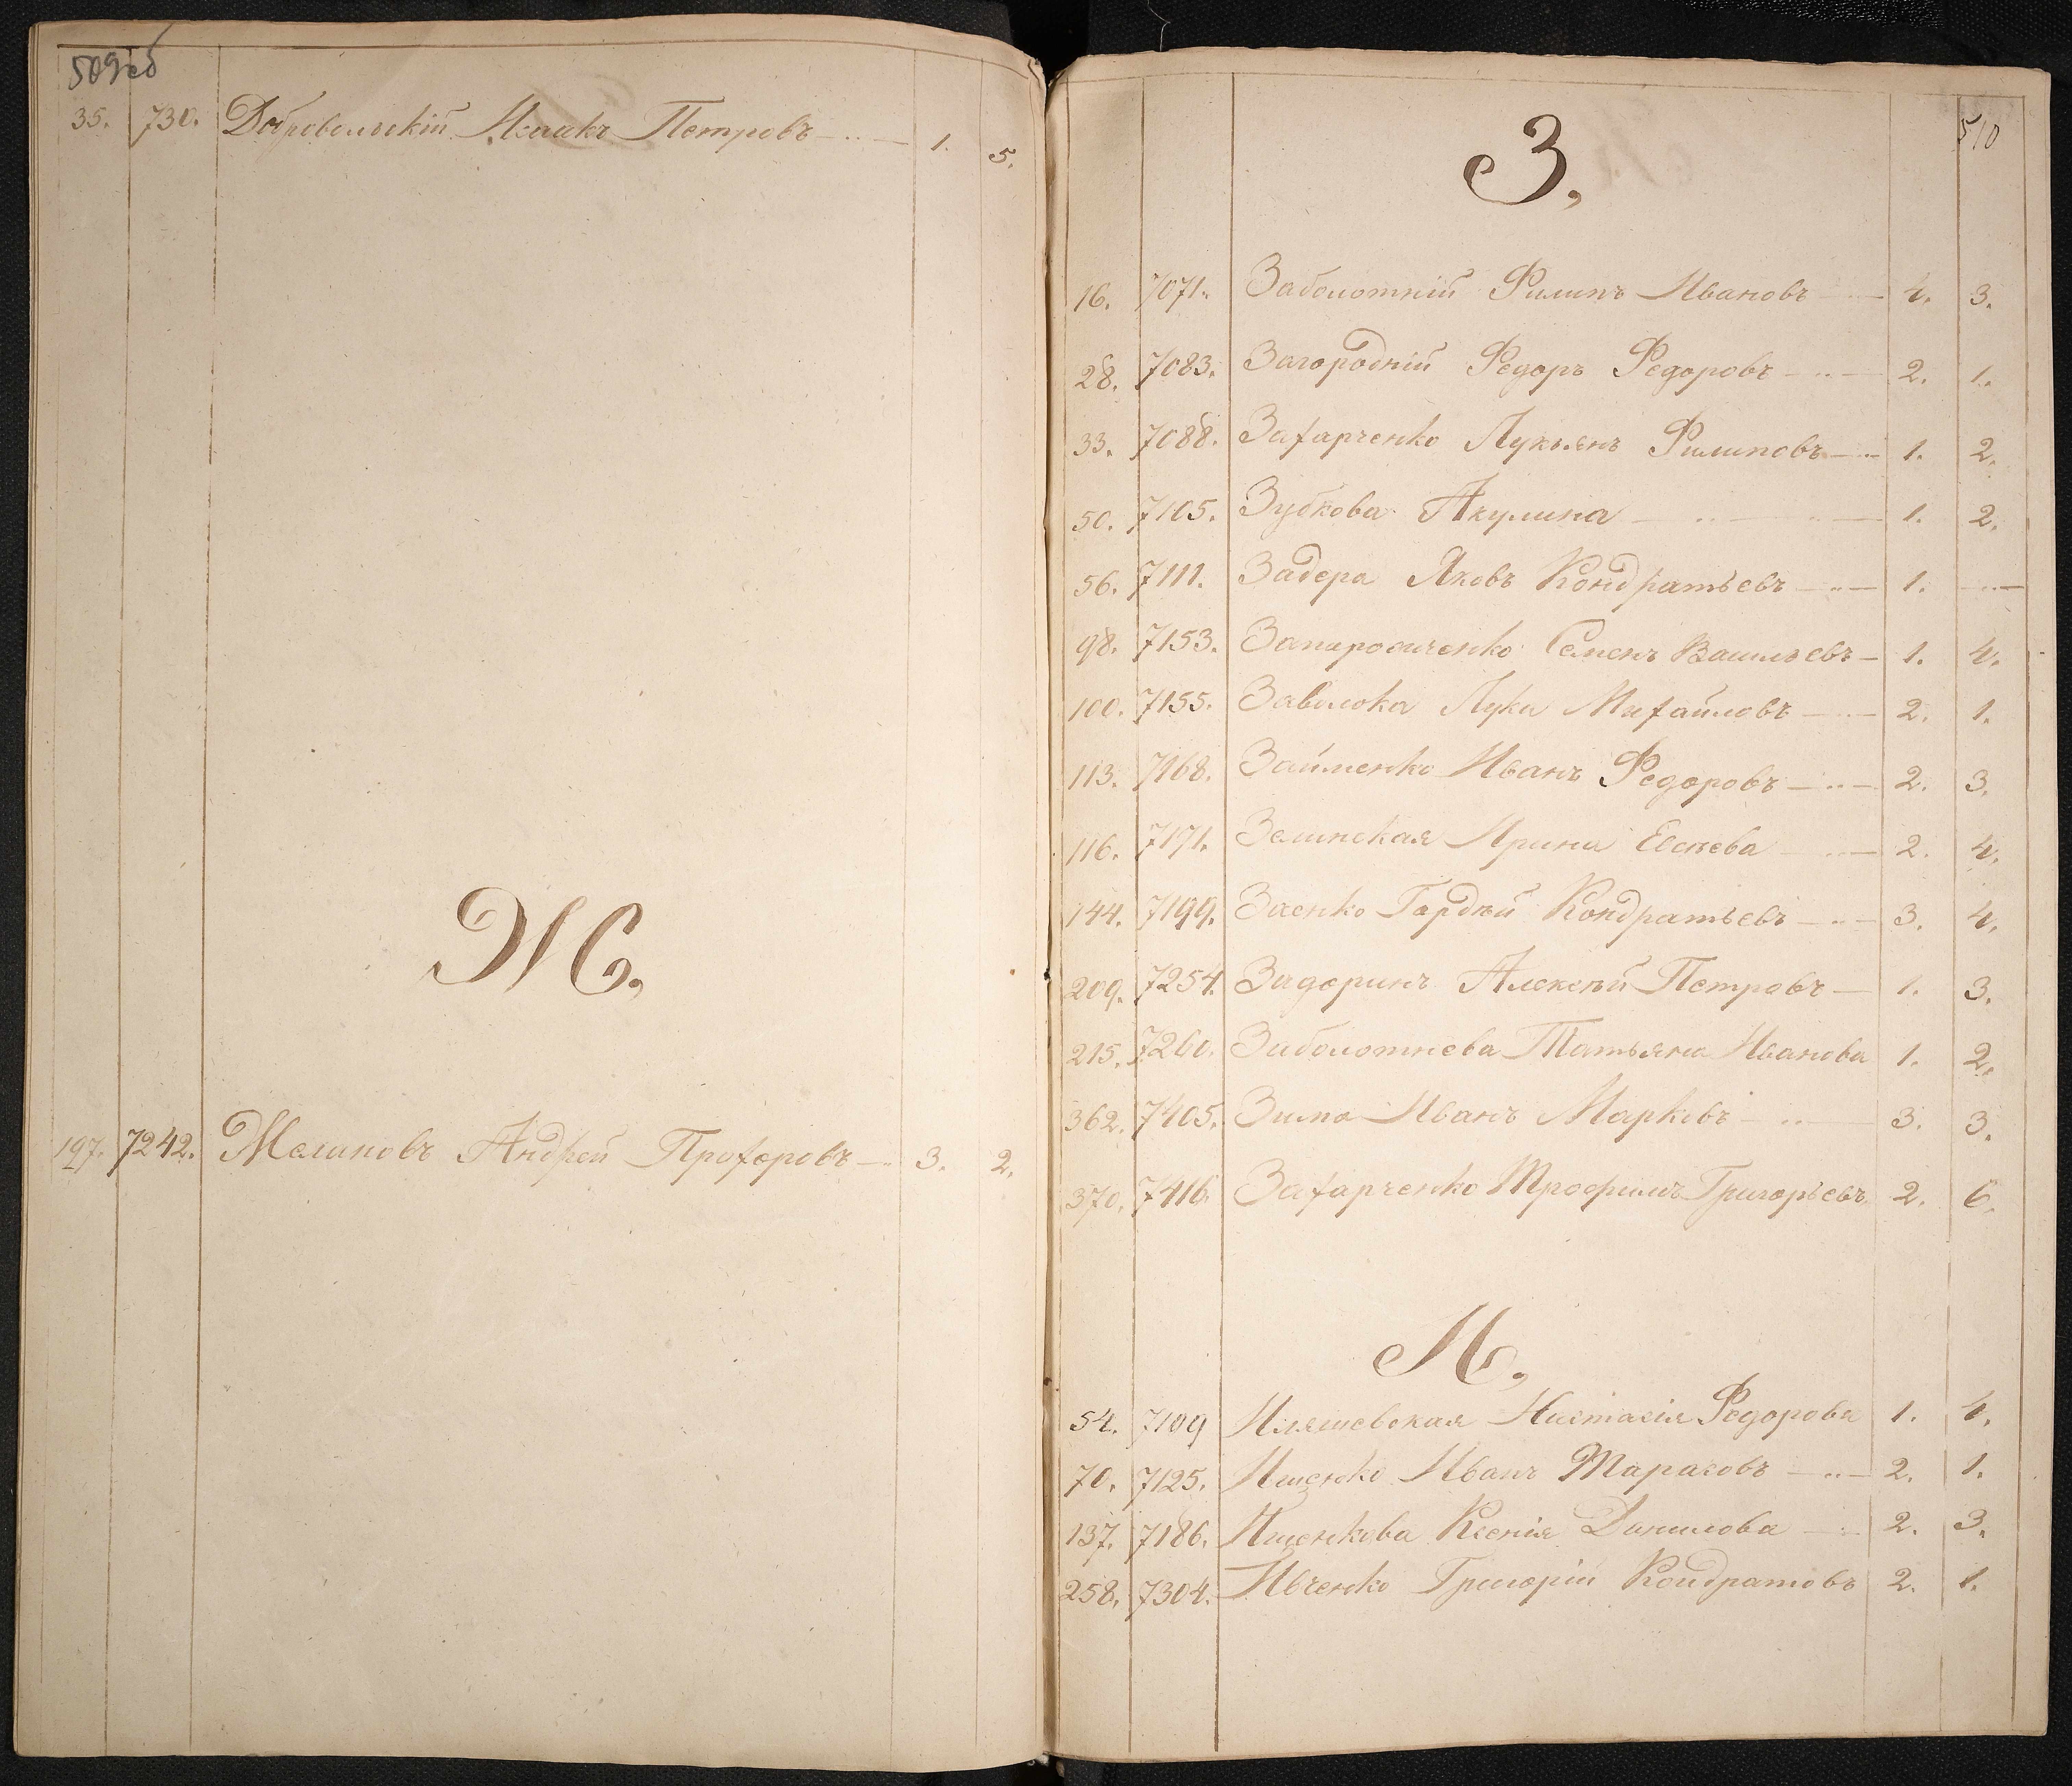 509об
35. 730. Добровольскій Исаакъ Петровъ 1. 5.
Ж.
197. 7242. Желановъ Андрей Прохоровъ 3. 2.
510
З.
16. 7071. Заболотній Филипъ Ивановъ 4. 3.
28. 7083. Загородній Федоръ Федоровъ 2. 1.
33. 7088. Захарченко Лукьянъ Филиповъ 1. 2.
50. 7105. Зубкова Акулина 1. 2.
56. 7111. Задера Яковъ Кондратьевъ 1.
98. 7153. Семенъ Васильевъ 1. 4.
100. 7155. Заволока Лука Михайловъ 2. 1.
113. 7168. Займенко Иванъ Федоровъ 2. 3.
116. 7171. Зелинская Ирина Евсѣева 2. 4.
144. 7199. Заенко Гордѣй Кондратьевъ 3. 4.
209. 7254. Задоринъ Алексѣй Петровъ 1. 3.
215. 7260. Заболотнева Татьяна Иванова 1. 2.
362. 7405. Зима Иванъ Марковъ 3. 3.
370. 7416. Захарченко Трофимъ Григорьевъ 2. 6.
И.
54. 7109 Иляшевская Настасія Федорова 1. 4.
70. 7125. Ищенко Иванъ Тарасовъ 2. 1.
137. 7186. Ищенкова Ксенія Данилова 2. 3.
258. 7304. Ивченко Григорій Кондратовъ 2. 1.